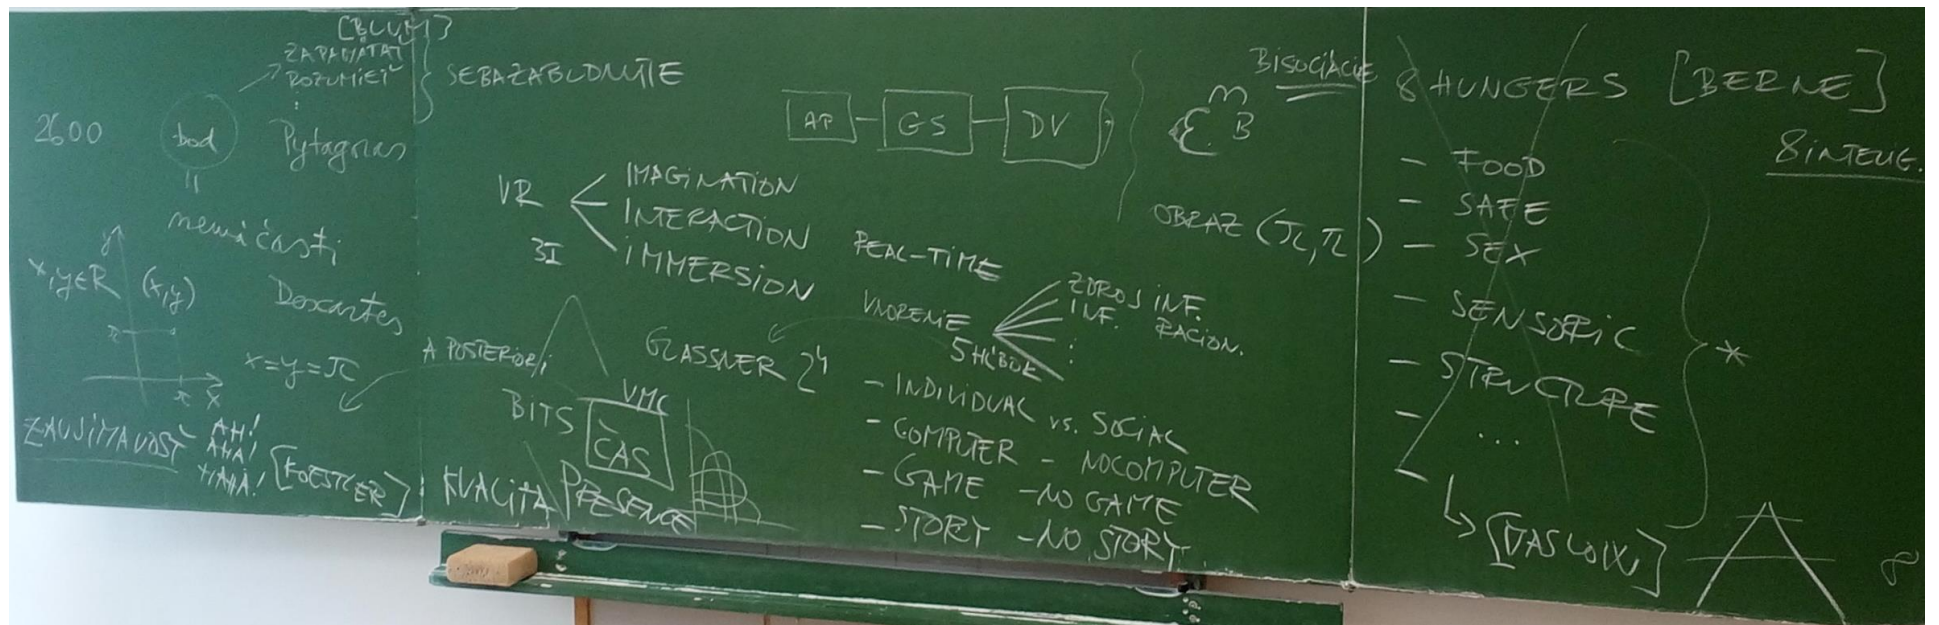 [BLUM]
ZAPAMÄTAŤ
ROZUMIEŤ
:
SEBAZABUDNUTIE
2600
bod
Pytagoras
=
nemá časti
y
x,y∈R
(x,y)
Descartes
π
x=y=π
π
x
ZAUJÍMAVOSŤ
AH!
AHA!
HAHA!
[KOESTLER]
AP
GS
DV
VR
3I
IMAGINATION
INTERACTION
IMMERSION
REAL-TIME
A POSTERIORI
GLASSNER 2⁴
VNORENIE
5 HĹBOK
ZDROJ INF.
INF. RACION.
:
BITS
VMC
ČAS
KVALITA
PRESENCE
- INDIVIDUAL vs. SOCIAL
- COMPUTER - NOCOMPUTER
- GAME - NO GAME
- STORY - NO STORY
BISOCIÁCIE
M
E
B
OBRAZ (π,π)
8 HUNGERS [BERNE]
8 INTELIG.
- FOOD
- SAFE
- SEX
- SENSORIC
- STRUCTURE
-
...
-
*
[MASLOW]